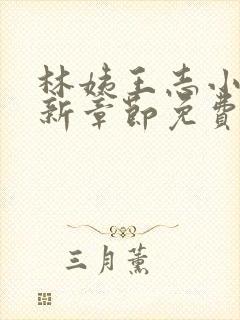 林姨王志小
新章節免費
三月薰